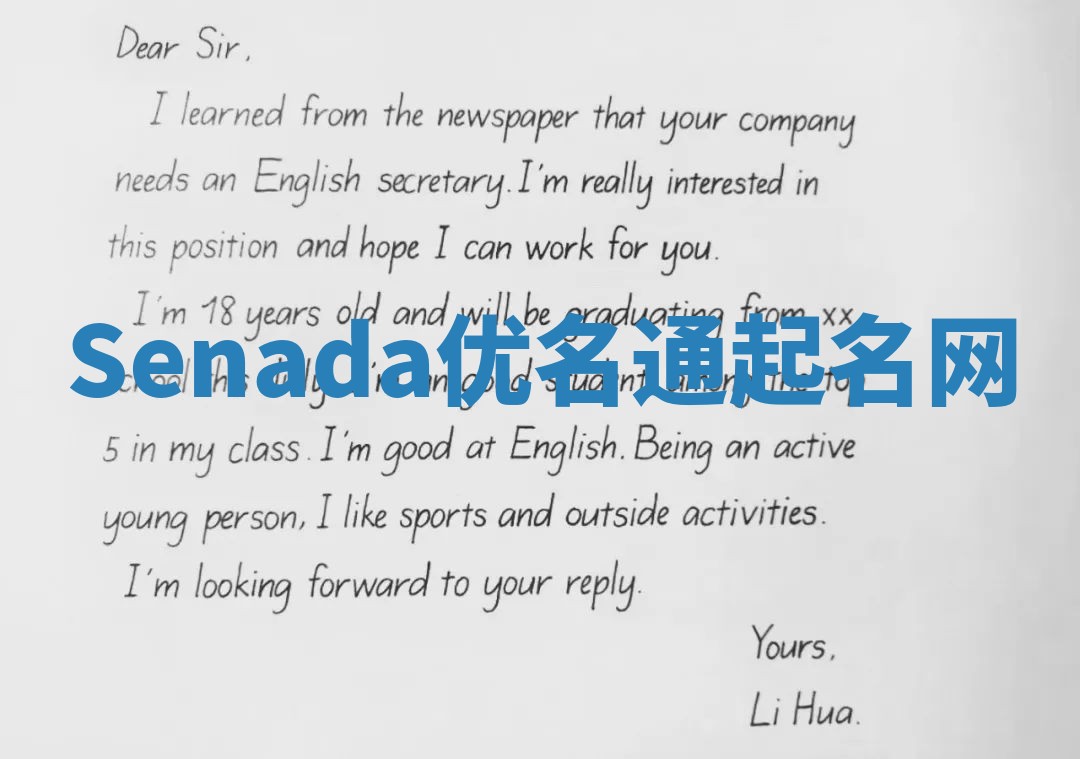 Dear Sir,
I learned from the newspaper that your company
needs an English secretary. I'm really interested in
this position and hope I can work for you.
I'm 18 years old and will be graduating from xx
Senada优名通起名网
school this July. I'm good student among the top
5 in my class. I'm good at English. Being an active
young person, I like sports and outside activities.
I'm looking forward to your reply.
Yours,
Li Hua.